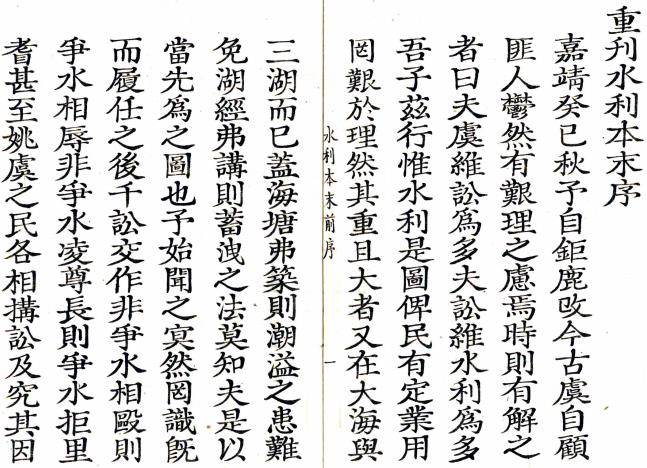 重刋水利本末序
嘉靖癸巳秋予自鉅鹿改今古虞自顧
匪人鬱然有艱理之慮焉時則有解之
者曰夫虞維訟爲多夫訟維水利爲多
吾子茲行惟水利是圖俾民有定業用
罔艱於理然其重且大者又在大海與
水利本末前序
一
三湖而已蓋海塘弗築則潮溢之患難
免湖經弗講則蓄洩之法莫知夫是以
當先爲之圖也予始聞之冥然罔識旣
而履任之後千訟交作非爭水相毆則
爭水相辱非爭水凌尊長則爭水拒里
耆甚至姚虞之民各相搆訟及究其因